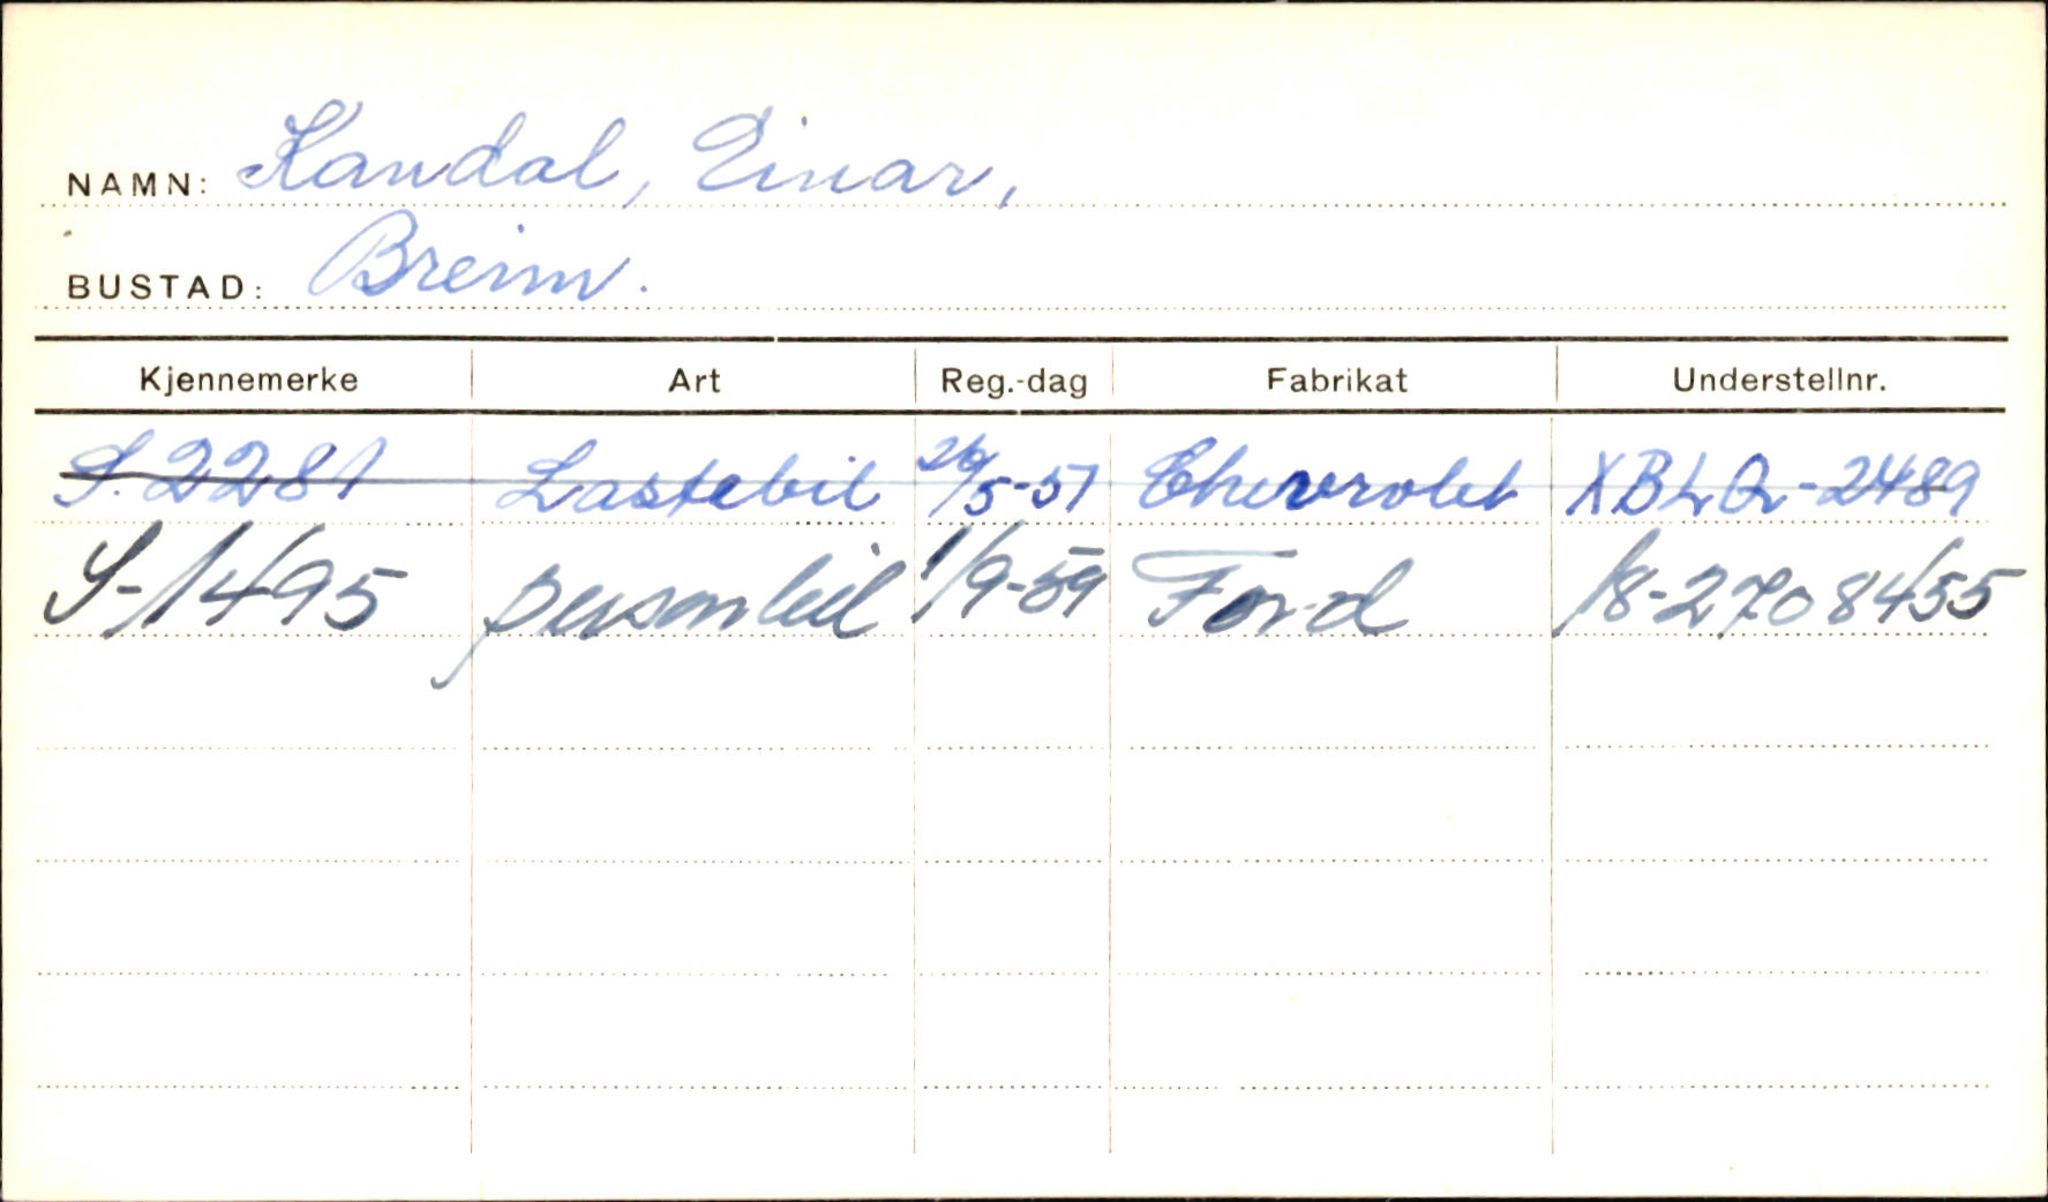 NAMN: Kandal, Einar,
BUSTAD: Breim.
Kjennemerke Art Reg.-dag Fabrikat Understellnr.
S. 2281 Lastebil 26/5-51 Chevrolet XBLQ-2489
S-1495 personbil 1/9-59 Ford 18-2708455